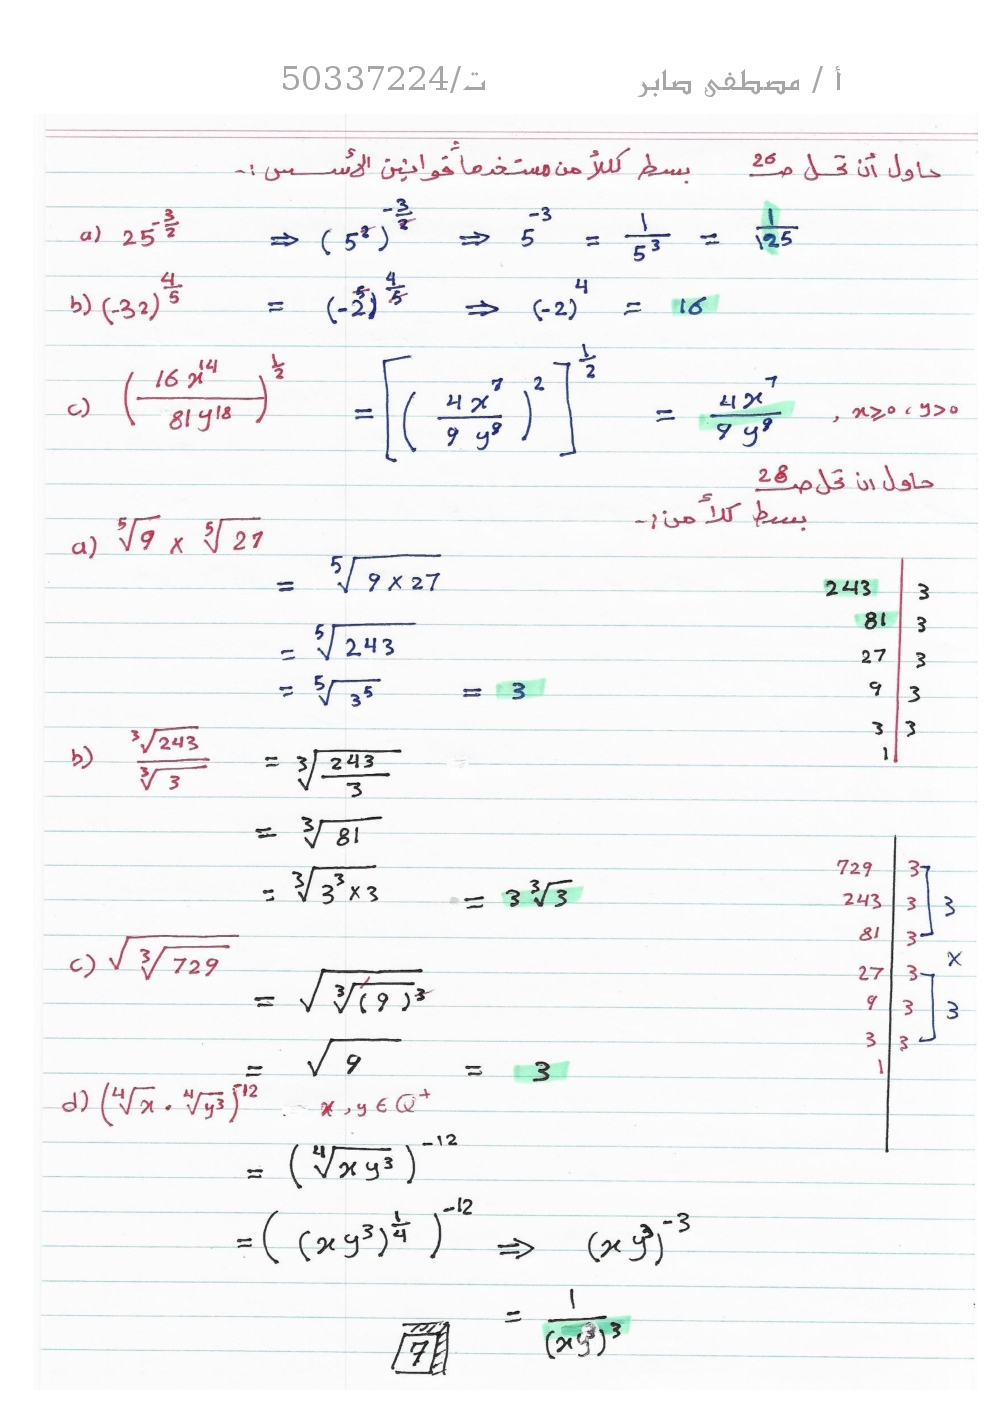 أ / مصطفى صابر ت/50337224
حاول أن تحل صـ 26 بسط كلاً من مستخدماً قوانين الأسس :-
a) 25^(-3/2) ⇒ (5^2)^(-3/2) ⇒ 5^-3 = 1/5^3 = 1/125
b) (-32)^(4/5) = (-2^5)^(4/5) ⇒ (-2)^4 = 16
c) (16 x^14 / 81 y^18)^(1/2) = [(4 x^7 / 9 y^9)^2]^(1/2) = 4 x^7 / 9 y^9 , x≥0 ، y>0
حاول ان تحل صـ 28
بسط كلاً من :-
a) ⁵√9 × ⁵√27
= ⁵√(9 × 27)
= ⁵√243
= ⁵√(3^5) = 3
243 | 3
81 | 3
27 | 3
9 | 3
3 | 3
1 |
b) ³√243 / ³√3 = ³√(243/3)
= ³√81
= ³√(3^3 × 3) = 3 ³√3
729 | 3
243 | 3 3
81 | 3
×
27 | 3
9 | 3 3
3 | 3
1 |
c) √(³√729)
= √(³√(9)^3)
= √9 = 3
d) (⁴√x . ⁴√y^3)^-12 x , y ∈ Q^+
= (⁴√(x y^3))^-12
= ((x y^3)^(1/4))^-12 ⇒ (x y^3)^-3
= 1/(x y^3)^3
7